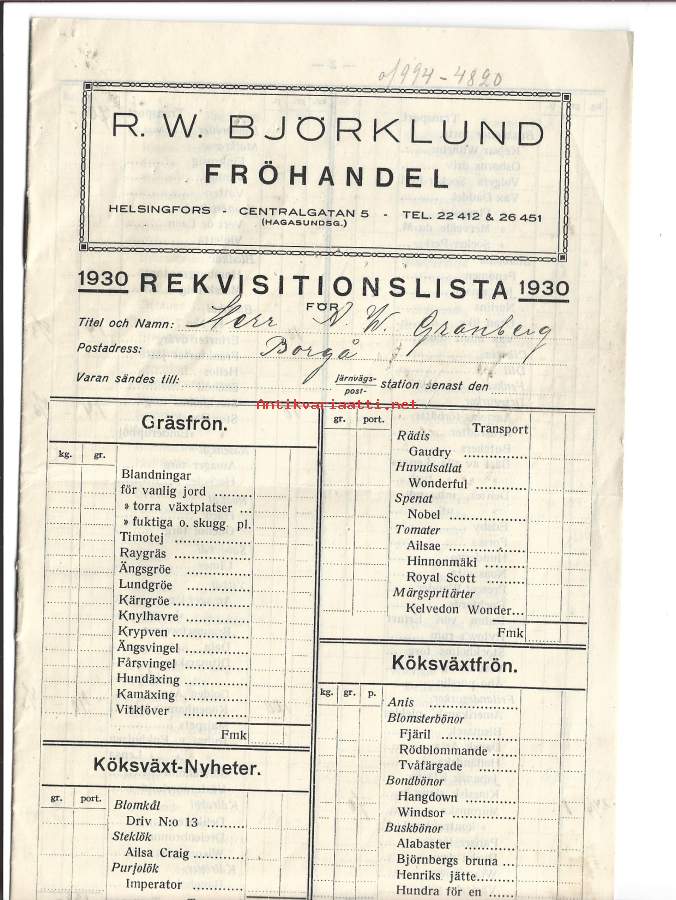 of 994-4820
R. W. BJÖRKLUND
FRÖHANDEL
HELSINGFORS - CENTRALGATAN 5 - TEL. 22 412 & 26 451
(HAGASUNDSG.)
1930 REKVISITIONSLISTA 1930
FÖR
Titel och Namn: Herr A. W. Granberg
Postadress: Borgå
Varan sändes till: järnvägs-
post- station senast den
Antikvariaatti.net
Gräsfrön.
kg. gr.
Blandningar
för vanlig jord
» torra växtplatser
» fuktiga o. skugg pl.
Timotej
Raygräs
Ängsgröe
Lundgröe
Kärrgröe
Knylhavre
Krypven
Ängsvingel
Fårsvingel
Hundäxing
Kamäxing
Vitklöver
Fmk
Köksväxt-Nyheter.
gr. port.
Blomkål
Driv N:o 13
Steklök
Ailsa Craig
Purjolök
Imperator
gr. port.
Transport
Rädis
Gaudry
Huvudsallat
Wonderful
Spenat
Nobel
Tomater
Ailsae
Hinnonmäki
Royal Scott
Märgspritärter
Kelvedon Wonder...
Fmk
Köksväxtfrön.
kg. gr. p.
Anis
Blomsterbönor
Fjäril
Rödblommande
Tvåfärgade
Bondbönor
Hangdown
Windsor
Buskbönor
Alabaster
Björnbergs bruna ...
Henriks jätte......
Hundra för en